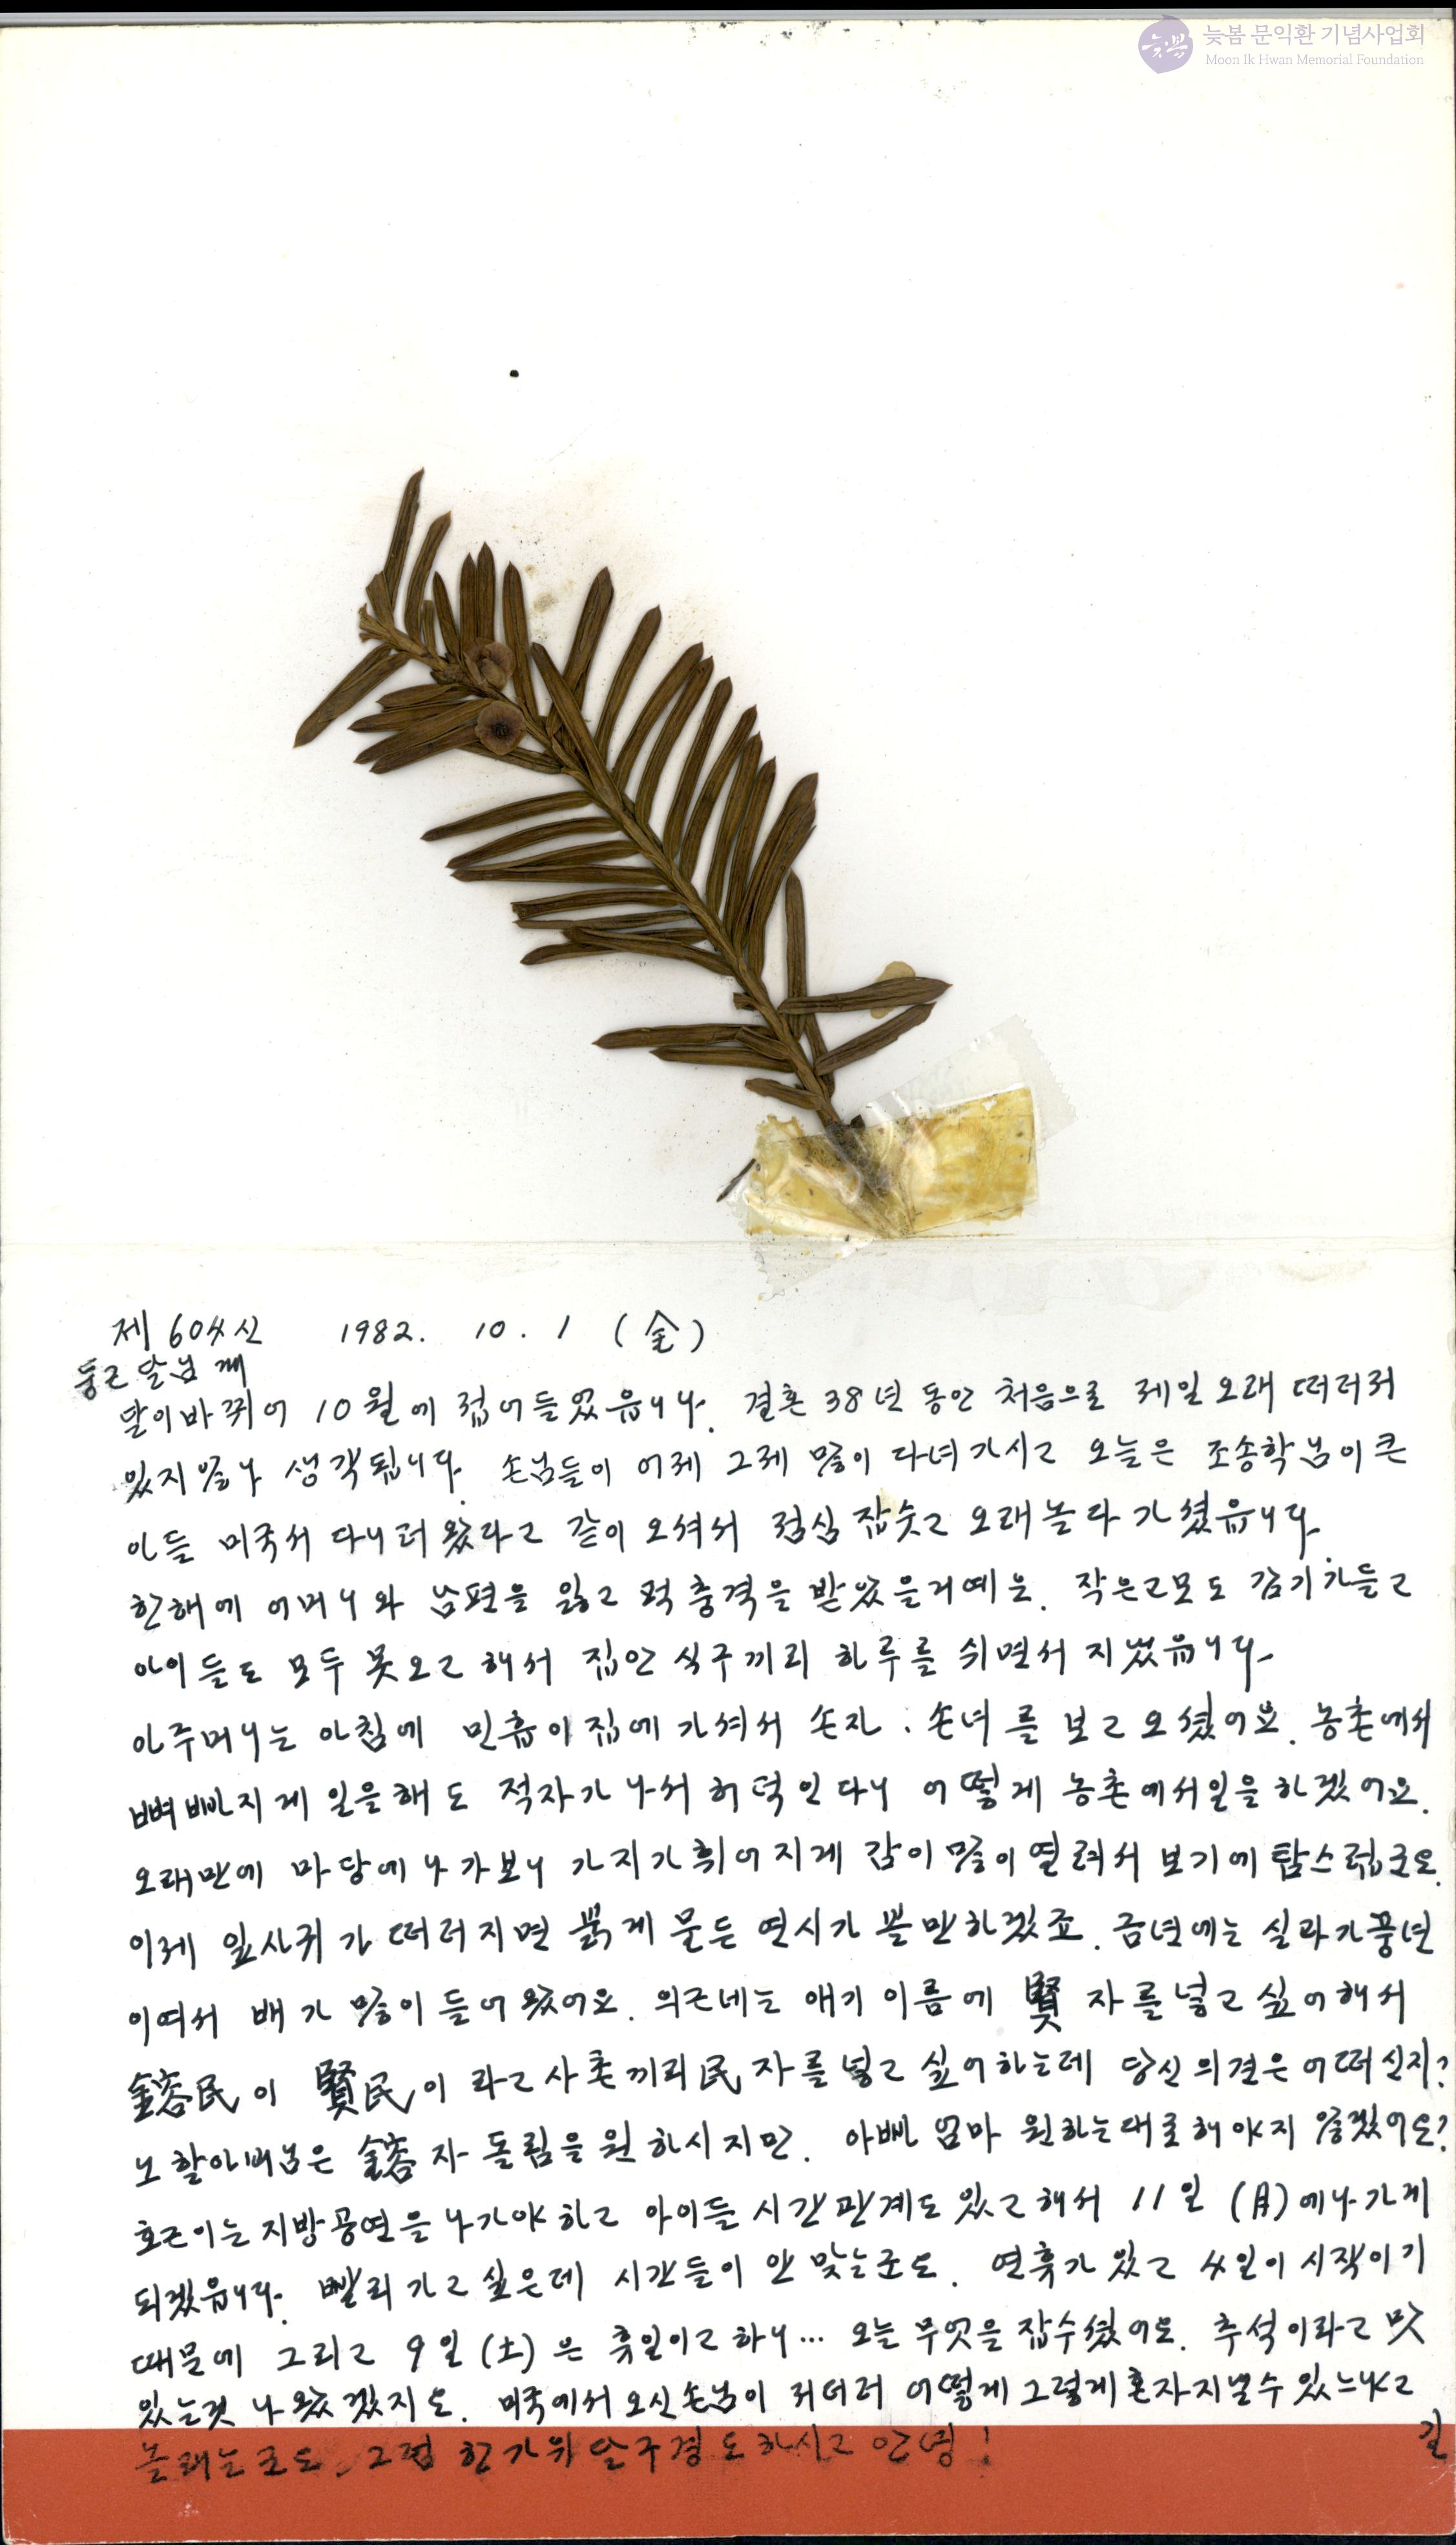 늦봄 문익환 기념사업회
Moon Ik Hwan Memorial Foundation
제 60신 1982. 10. 1 (金)
둥근 달님께
달이 바뀌어 10월에 접어들었읍니다. 결혼 38년 동안 처음으로 제일 오래 떠러져
있지 않나 생각됩니다. 손님들이 어제 그제 많이 다녀가시고 오늘은 조송학님이 큰
아들 미국서 다니러 왔다고 같이 오셔서 점심 잡숫고 오래 놀다 가셨읍니다.
한해에 어머니와 남편을 잃고 퍽 충격을 받았을거예요. 작은고모도 감기가 들고
아이들도 모두 못오고 해서 집안 식구끼리 하루를 쉬면서 지냈읍니다.
아주머니는 아침에 민흡이 집에 가셔서 손자. 손녀를 보고 오셨어요. 농촌에서
뼈빠지게 일을 해도 적자가 나서 허덕인다니 어떻게 농촌에서 일을 하겠어요.
오래만에 마당에 나가보니 가지가 휘어지게 감이 많이 열려서 보기에 탐스럽군요.
이제 잎사귀가 떠러지면 붉게 물든 연시가 볼만하겠죠. 금년에는 실과가 풍년
이여서 배가 많이 들어왔어요. 의근네는 애기 이름에 賢 자를 넣고 싶어해서
鎔民이 賢民이 라고 사촌끼리 民 자를 넣고 싶어하는데 당신 의견은 어떠신지?
노 할아버님은 鎔 자 돌림을 원하시지만. 아빠 엄마 원하는대로 해야지 않겠어요?
호근이는 지방공연을 나가야 하고 아이들 시간관계도 있고 해서 11일 (月)에나 가게
되겠읍니다. 빨리 가고 싶은데 시간들이 안 맞는군요. 연휴가 있고 4일이 시작이기
때문에 그리고 9일 (土)은 휴일이고 하니... 오늘 무엇을 잡수셨어요. 추석이라고 맛
있는것 나왔겠지요. 미국에서 오신 손님이 저더러 어떻게 그렇게 혼자 지낼수 있느냐고
놀래는군요. 그럼 한가위 달구경도 하시고 안녕!
길